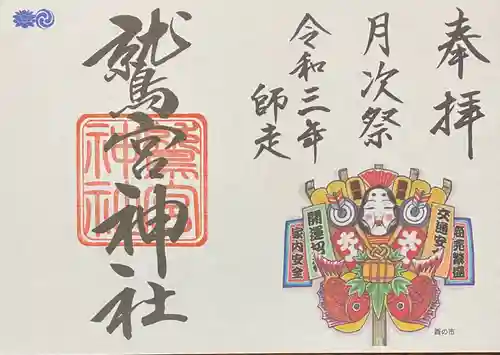 奉拝
月次祭
令和三年
師走
鷲宮神社
鷲宮神社
開運招福
家内安全
交通安全
商売繁盛
酉の市